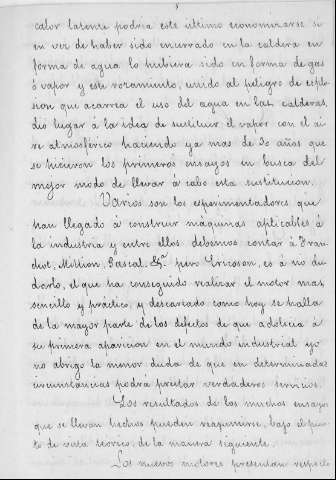 calor latente podria este ultimo economizarse si
en vez de haber sido encerrado en la caldera en
forma de agua lo hubiera sido en forma de gas
ó vapor y este razonamiento, unido al peligro de explo
sion que acarrea el uso del agua en las calderas
dió lugar á la idea de sustituir el vapor con el ai
re atmosférico haciendo ya mas de 30 años que
se hicieron los primeros ensayos en busca del
mejor modo de llevar á cabo esta sustitucion.
Varios son los experimentadores que
han llegado á construir máquinas aplicables á
la industria y entre ellos debemos contar á Fran
chot, Million, Pascal, &ª pero Ericson, es á no du
darlo, el que ha conseguido realizar el motor mas
sencillo y práctico, y descartado como hoy se halla
de la mayor parte de los defectos de que adolecia á
su primera aparicion en el mundo industrial yo
no abrigo la menor duda de que en determinadas
circunstancias podrá prestar verdaderos servicios.
Los resultados de los muchos ensayos
que se llevan hechos pueden resumirse, bajo el pun
to de vista teorico, de la manera siguiente.
Los nuevos motores presentan respecto